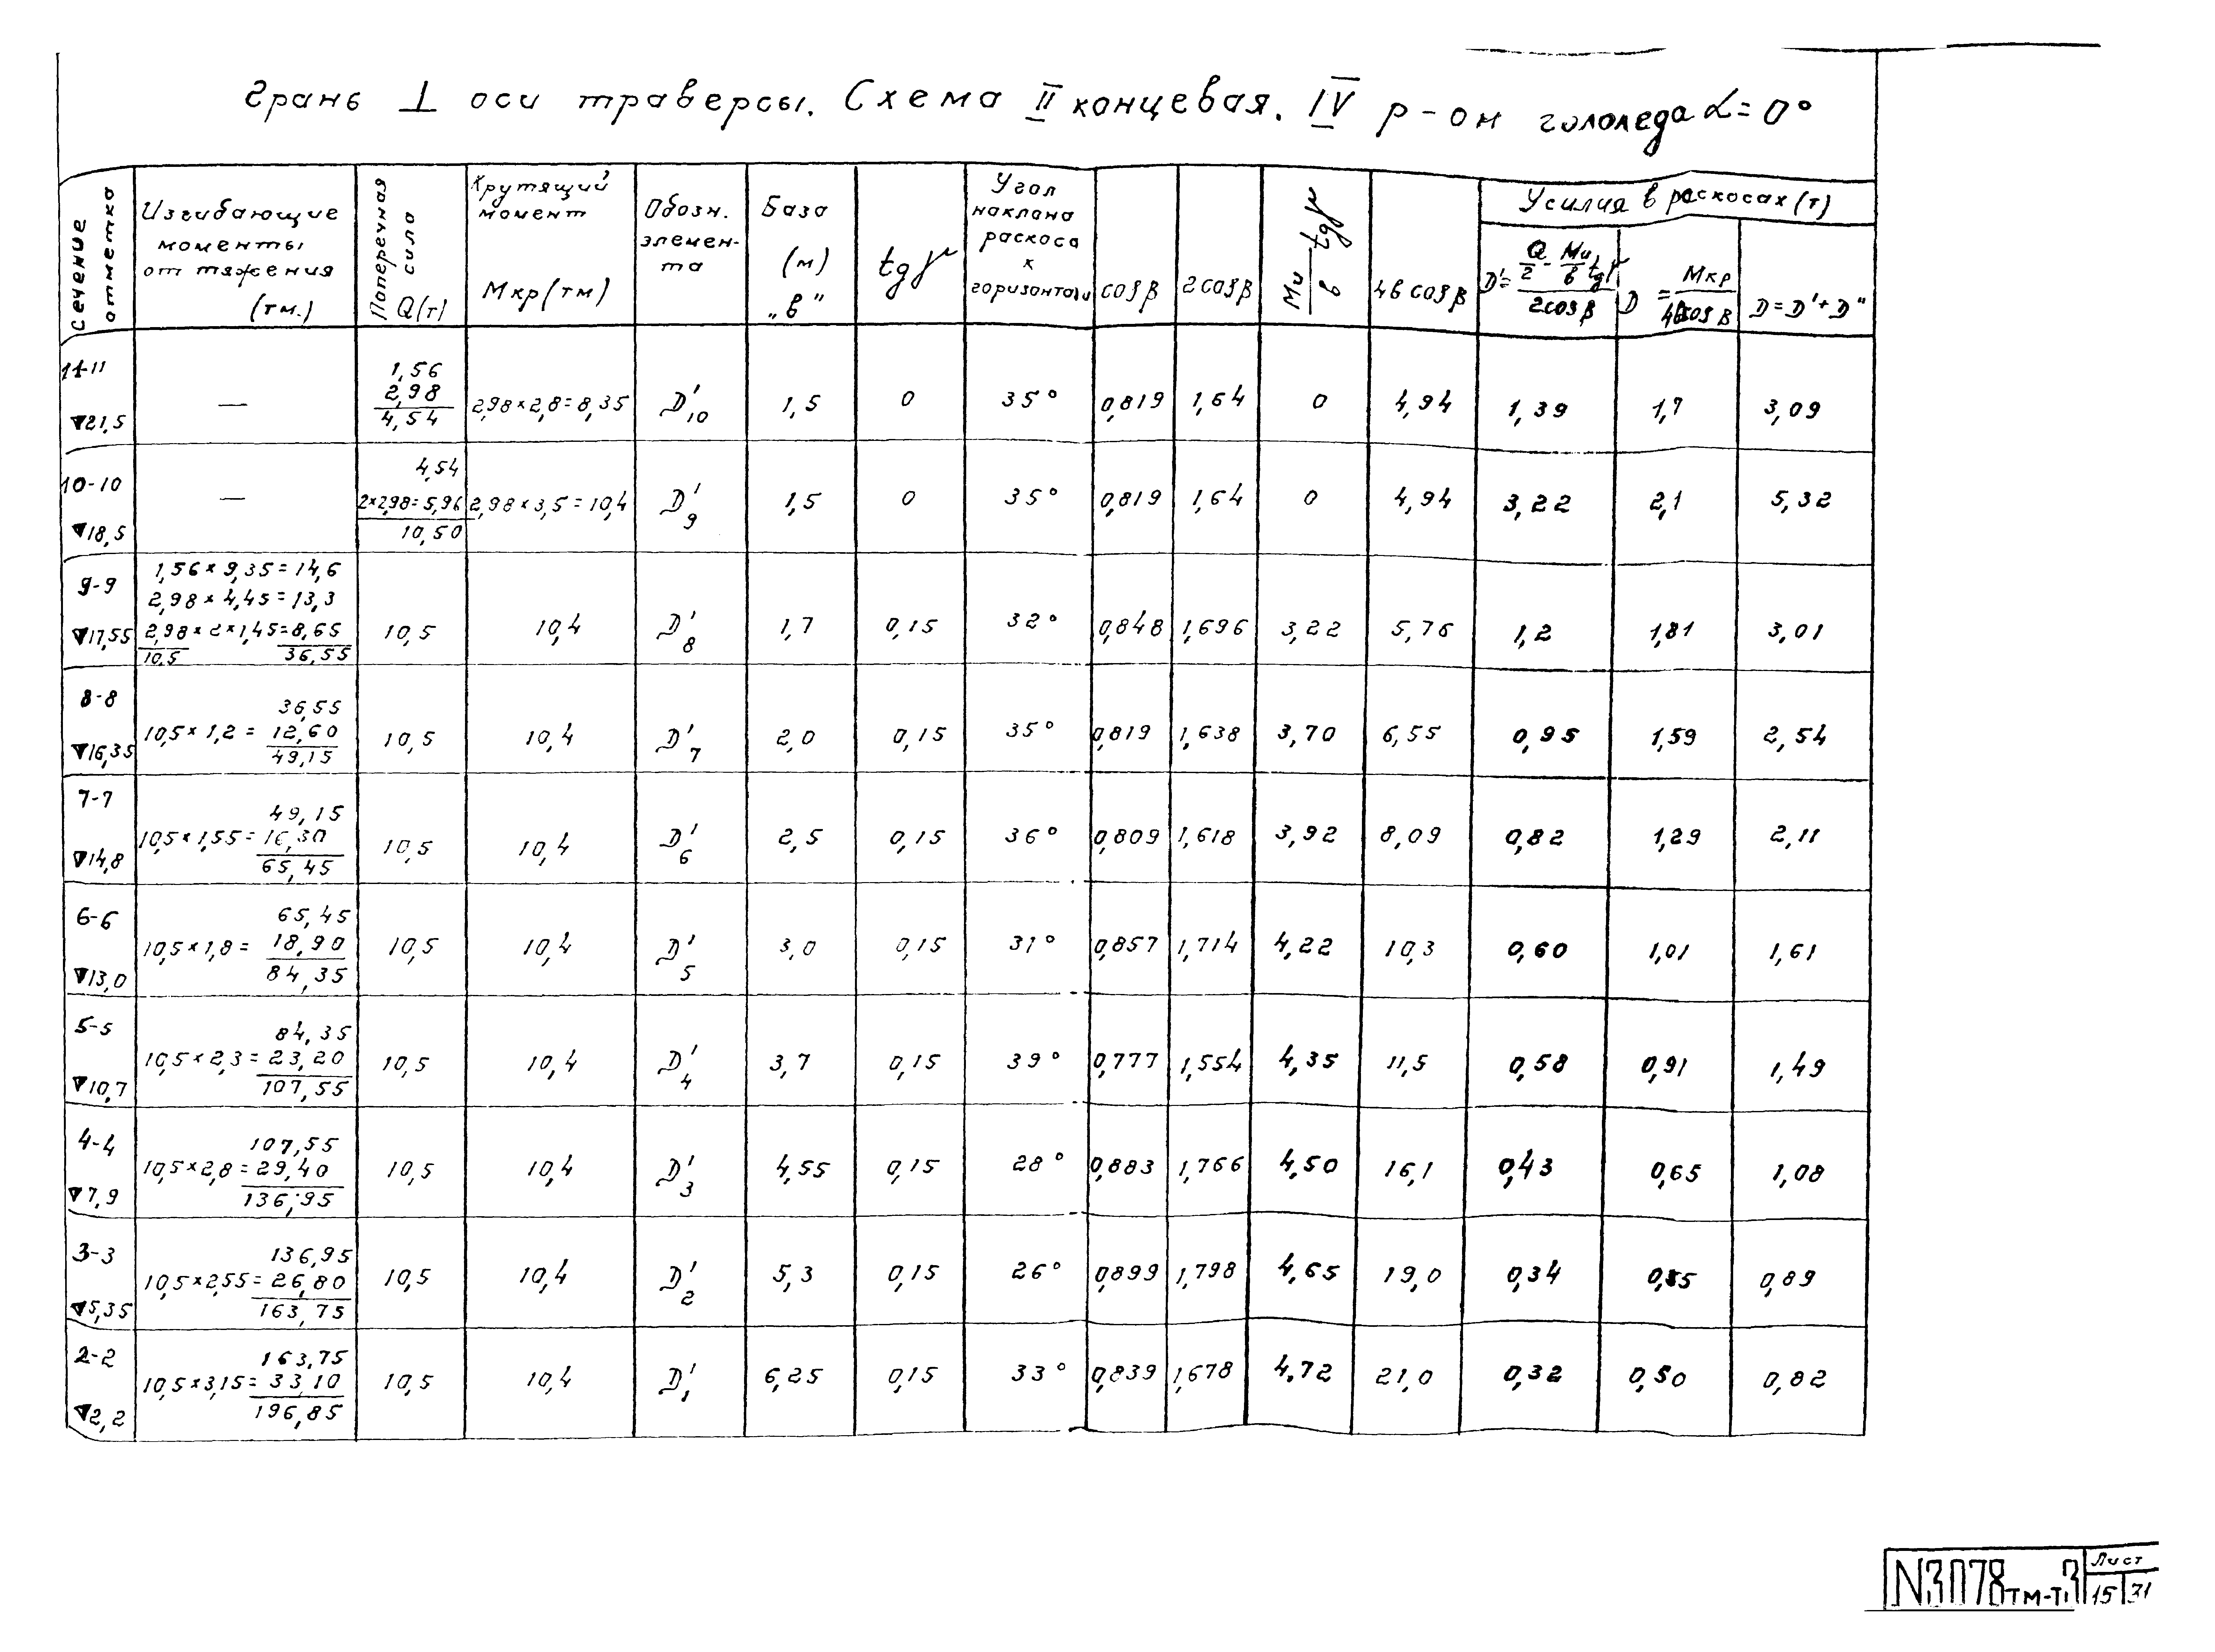 Грань ⊥ оси траверсы. Схема II концевая. IV р-он гололеда α=0°
Сечение отметка
Изгибающие моменты от тяжения (тм.)
Поперечная сила Q(т)
Крутящий момент Мкр(тм)
Обозн. элемен-та
База (м) „в"
tgγ
Угол наклана раскоса к горизонтали
cosβ
2cosβ
Ми/в tgγ
4в cosβ
Усилия в раскосах (т)
D'= (Q/2 - Ми/в tgγ)/2cosβ
D = Мкр/4вcosβ
D=D'+D"
11-11 ▽21,5 — 1,56 2,98 4,54 2,98×2,8=8,35 D'10 1,5 0 35° 0,819 1,64 0 4,94 1,39 1,7 3,09
10-10 ▽18,5 — 4,54 2×2,98=5,96 10,50 2,98×3,5=10,4 D'9 1,5 0 35° 0,819 1,64 0 4,94 3,22 2,1 5,32
9-9 ▽17,55 1,56×9,35=14,6 2,98×4,45=13,3 2,98×2×1,45=8,65 10,5 36,55 10,5 10,4 D'8 1,7 0,15 32° 0,848 1,696 3,22 5,76 1,2 1,81 3,01
8-8 ▽16,35 36,55 10,5×1,2= 12,60 49,15 10,5 10,4 D'7 2,0 0,15 35° 0,819 1,638 3,70 6,55 0,95 1,59 2,54
7-7 ▽14,8 49,15 10,5×1,55= 16,30 65,45 10,5 10,4 D'6 2,5 0,15 36° 0,809 1,618 3,92 8,09 0,82 1,29 2,11
6-6 ▽13,0 65,45 10,5×1,8= 18,90 84,35 10,5 10,4 D'5 3,0 0,15 31° 0,857 1,714 4,22 10,3 0,60 1,01 1,61
5-5 ▽10,7 84,35 10,5×2,3= 23,20 107,55 10,5 10,4 D'4 3,7 0,15 39° 0,777 1,554 4,35 11,5 0,58 0,91 1,49
4-4 ▽7,9 107,55 10,5×2,8= 29,40 136,95 10,5 10,4 D'3 4,55 0,15 28° 0,883 1,766 4,50 16,1 0,43 0,65 1,08
3-3 ▽5,35 136,95 10,5×2,55= 26,80 163,75 10,5 10,4 D'2 5,3 0,15 26° 0,899 1,798 4,65 19,0 0,34 0,55 0,89
2-2 ▽2,2 163,75 10,5×3,15= 33,10 196,85 10,5 10,4 D'1 6,25 0,15 33° 0,839 1,678 4,72 21,0 0,32 0,50 0,82
N3078тм-т.3
Лист
15 31